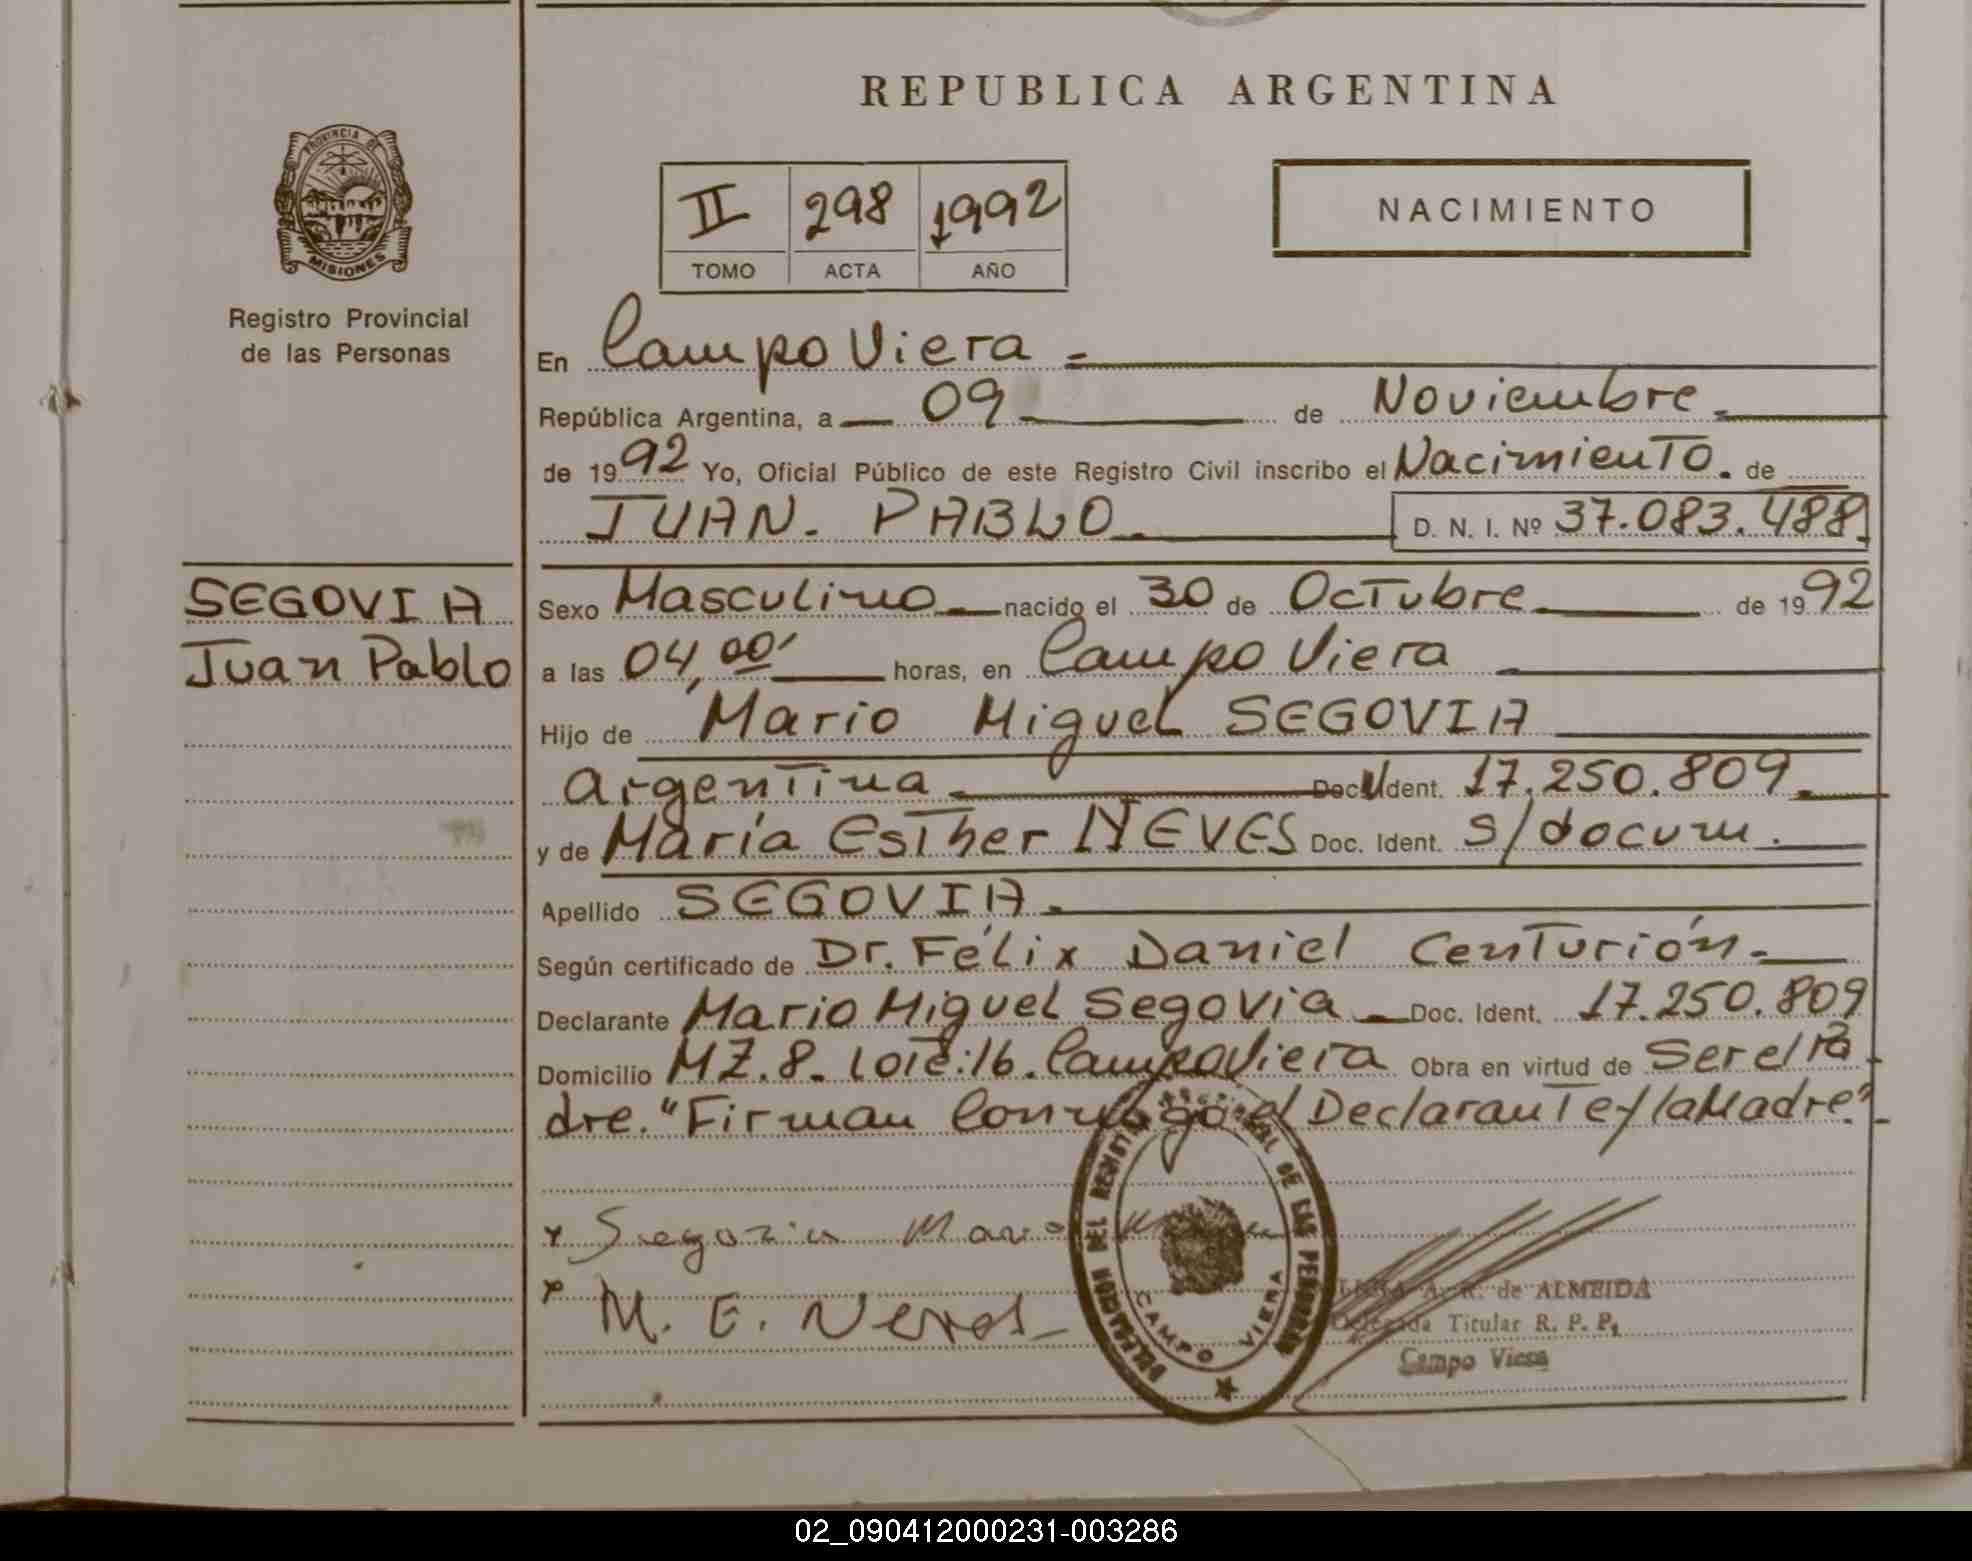 REPUBLICA ARGENTINA
PROVINCIA DE
MISIONES
Registro Provincial
de las Personas
II 298 1992
TOMO ACTA AÑO
NACIMIENTO
En Campo Viera
República Argentina, a 09 de Noviembre
de 1992 Yo, Oficial Público de este Registro Civil inscribo el Nacimiento. de
JUAN. PABLO D. N. I. Nº 37.083.488
SEGOVIA
Juan Pablo
Sexo Masculino nacido el 30 de Octubre de 1992
a las 04,00' horas, en Campo Viera
Hijo de Mario Miguel SEGOVIA
Argentina Doc. Ident. 17.250.809
y de María Esther NEVES Doc. Ident. s/docum.
Apellido SEGOVIA
Según certificado de Dr. Félix Daniel Centurión
Declarante Mario Miguel Segovia Doc. Ident. 17.250.809
Domicilio MZ. 8 Lote: 16. Campo Viera Obra en virtud de Ser el Pa
dre. "Firman Conmigo el Declarante y la Madre"
Segovia Mario
M. E. Neves
DELEGACION DEL REGISTRO PROVINCIAL DE LAS PERSONAS
CAMPO VIERA
A. R. de ALMEIDA
Delegada Titular R. P. P.
Campo Viera
02_090412000231-003286